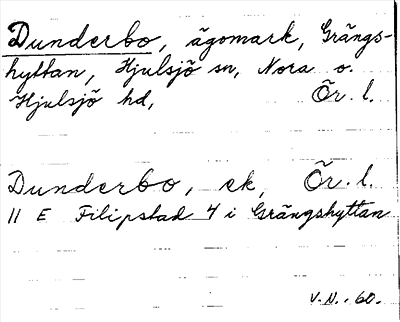 Dunderbo, ägomark, Grängs-
hyttan, Hjulsjö sn, Nora o.
Hjulsjö hd, Ör. l.
Dunderbo, ek, Ör. l.
11 E Filipstad 4 i Grängshyttan
V.N. 60.